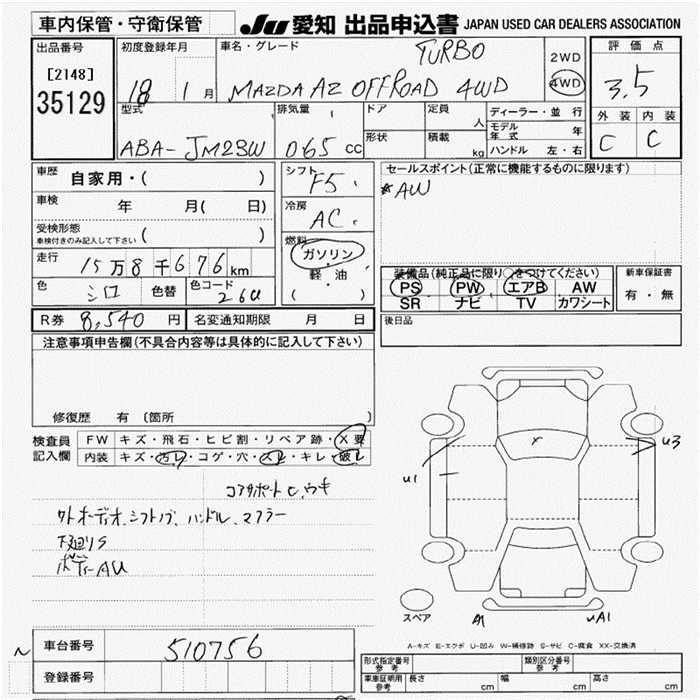 車内保管・守衛保管
JU 愛知 出品申込書 JAPAN USED CAR DEALERS ASSOCIATION
出品番号
[2148]
35129
初度登録年月
18 1 月
車名・グレード
TURBO
MAZDA AZ OFFROAD 4WD
2WD
4WD
評価点
3.5
外装 内装
C C
型式
ABA-JM23W
排気量
065 cc
ドア
形状
定員 人
積載 kg
ディーラー・並行
モデル年式 年
ハンドル 左・右
車歴 自家用・( )
車検 年 月( 日)
受検形態
車検付きのみ記入して下さい ( )
走行 15万8千676km
色 シロ 色替
色コード 26U
シフト F5
冷房 AC
燃料
ガソリン
軽・油
( )
セールスポイント(正常に機能するものに限ります)
*AW
装備品(純正品に限り○をつけてください)
PS PW エアB AW
SR ナビ TV カワシート
新車保証書
有・無
R券 8,540 円 名変通知期限 月 日
後日品
注意事項申告欄(不具合内容等は具体的に記入して下さい)
修復歴 有 〔箇所
検査員記入欄
FW キズ・飛石・ヒビ割・リペア跡・X要
内装 キズ・汚レ・コゲ・穴・スレ・キレ・破レ
コアサポートC.ウキ
外オーディオ.シフトノブ.ハンドル.マフラー
下廻りS
ボディAU
U1
U3
スペア
A1
UA1
A-キズ E-エクボ U-凹み W-補修跡 S-サビ C-腐食 XX-交換済
車台番号 510756
登録番号
型式指定番号 参考
類別区分番号 参考
車庫証明用 参考 長さ cm 幅 cm 高さ cm